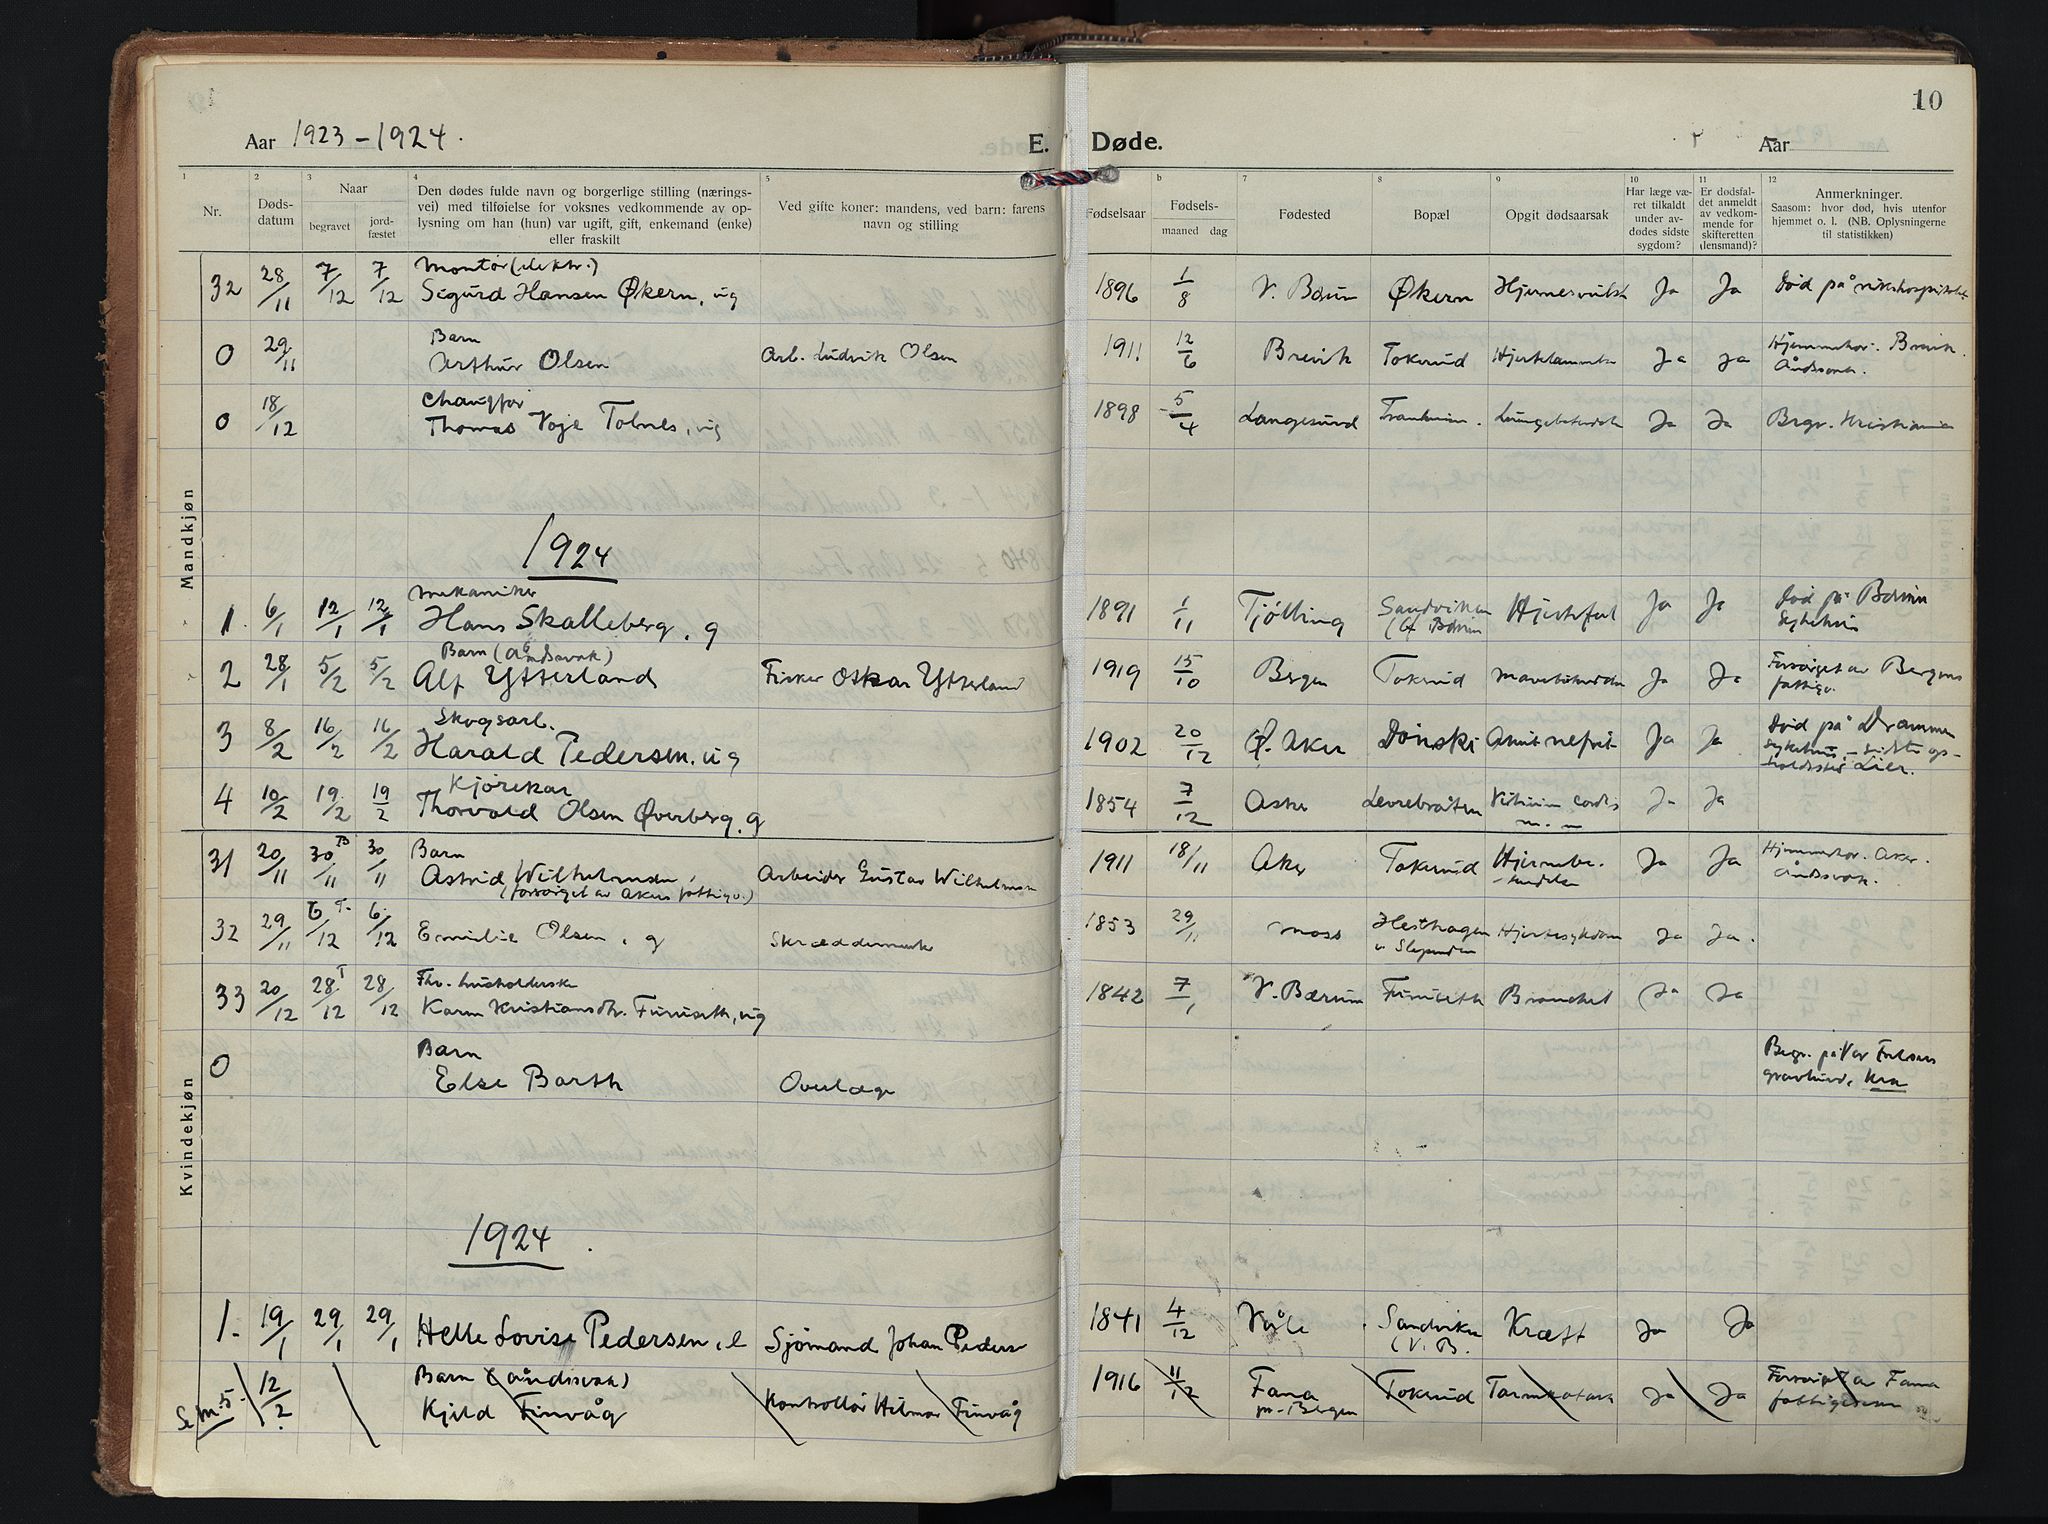 10
Aar 1923-1924.
E. Døde.
Aar
1 2 3 4 5 b 7 8 9 10 11 12
Nr.
Døds-
datum
Naar
begravet
jord-
fæstet
Den dødes fulde navn og borgerlige stilling (nærings-
vei) med tilføielse for voksnes vedkommende av op-
lysning om han (hun) var ugift, gift, enkemand (enke)
eller fraskilt
Ved gifte koner: mandens, ved barn: farens
navn og stilling
Fødselsaar
Fødsels-
maaned dag
Fødested
Bopæl
Opgit dødsaarsak
Har læge væ-
ret tilkaldt
under av-
dødes sidste
sygdom?
Er dødsfal-
det anmeldt
av vedkom-
mende for
skifteretten
(lensmand)?
Anmerkninger.
Saasom: hvor død, hvis utenfor
hjemmet o. l. (NB. Oplysningerne
til statistikken)
Mandkjøn
Montør (elektr.)
32 28/11 7/12 7/12 Sigurd Hansen Økern, ug 1896 1/8 V. Bærum Økern Hjernesvulst Ja Ja Død på rikshospitalet
Barn
0 29/11 Arthur Olsen Arb. Ludvik Olsen 1911 12/6 Brevik Tokerud Hjertelammelse Ja Ja Hjemmehør. Brevik.
Åndssvak.
Chauffør
0 18/12 Thomas Voje Tolnes, ug 1898 5/4 Langesund Lungebetændelse Ja Ja Begr. Kristiania
1924
mekaniker
1. 6/1 12/1 12/1 Hans Skalleberg, g 1891 1/11 Tjølling Sandviken Hjertefeil Ja Ja Død på Bærum
(V. Bærum sykehus
Barn (åndssvak)
2 28/1 5/2 5/2 Alf Ytterland Fisker Oskar Ytterland 1919 15/10 Bergen Tokerud Ja Ja Forsørget av Bergens
fattigv.
Skogsarb.
3 8/2 16/2 16/2 Harald Pedersen, ug 1902 20/12 Ø. Aker Dønski Akut nefrit Ja Ja Død på Drammen
sykehus, - sidste op-
holdssted Lier.
Kjørekar
4 10/2 19/2 19/2 Thorvald Olsen Øverberg, g 1854 7/12 Asker Levrebråten Vitium cordis Ja Ja
m. m
Kvindekjøn
Barn
31 20/11 30/11 B 30/11 Astrid Wilhelmsen, Arbeider Gustav Wilhelmsen 1911 18/11 Aker Tokerud Hjernebe- Ja Ja Hjemmehør. Aker.
(forsørget av Akers fattigv.) -tændelse Åndssvak.
32 29/11 6/12 T. 6/12 Emilie Olsen, g 1853 29/11 Moss Hesthagen Hjertesykdom Ja Ja.
v Slependen
Fhv. husholderske
33 20/12 28/12 T 28/12 Karen Kristiansdtr. Furuseth, ug 1842 7/1 V. Bærum Furuseth Bronchit Ja Ja
Barn
0 Else Barth Overlæge Begr. på Vår Frelsers
gravlund, Kra
1924.
1. 19/1 29/1 29/1 Helle Lovise Pedersen, e Sjømand Johan Pedersen 1841 4/12 Våle Sandvika Kræft Ja Ja
(V. B.
Barn (åndssvak)
Se m. 5. 12/2 Kjeld Finvåg Kontrollør Hilmar Finvåg 1916 11/12 Fana Tokerud Tarmkatarr Ja Ja Forsørget av Fana
pr. Bergen fattigvesen